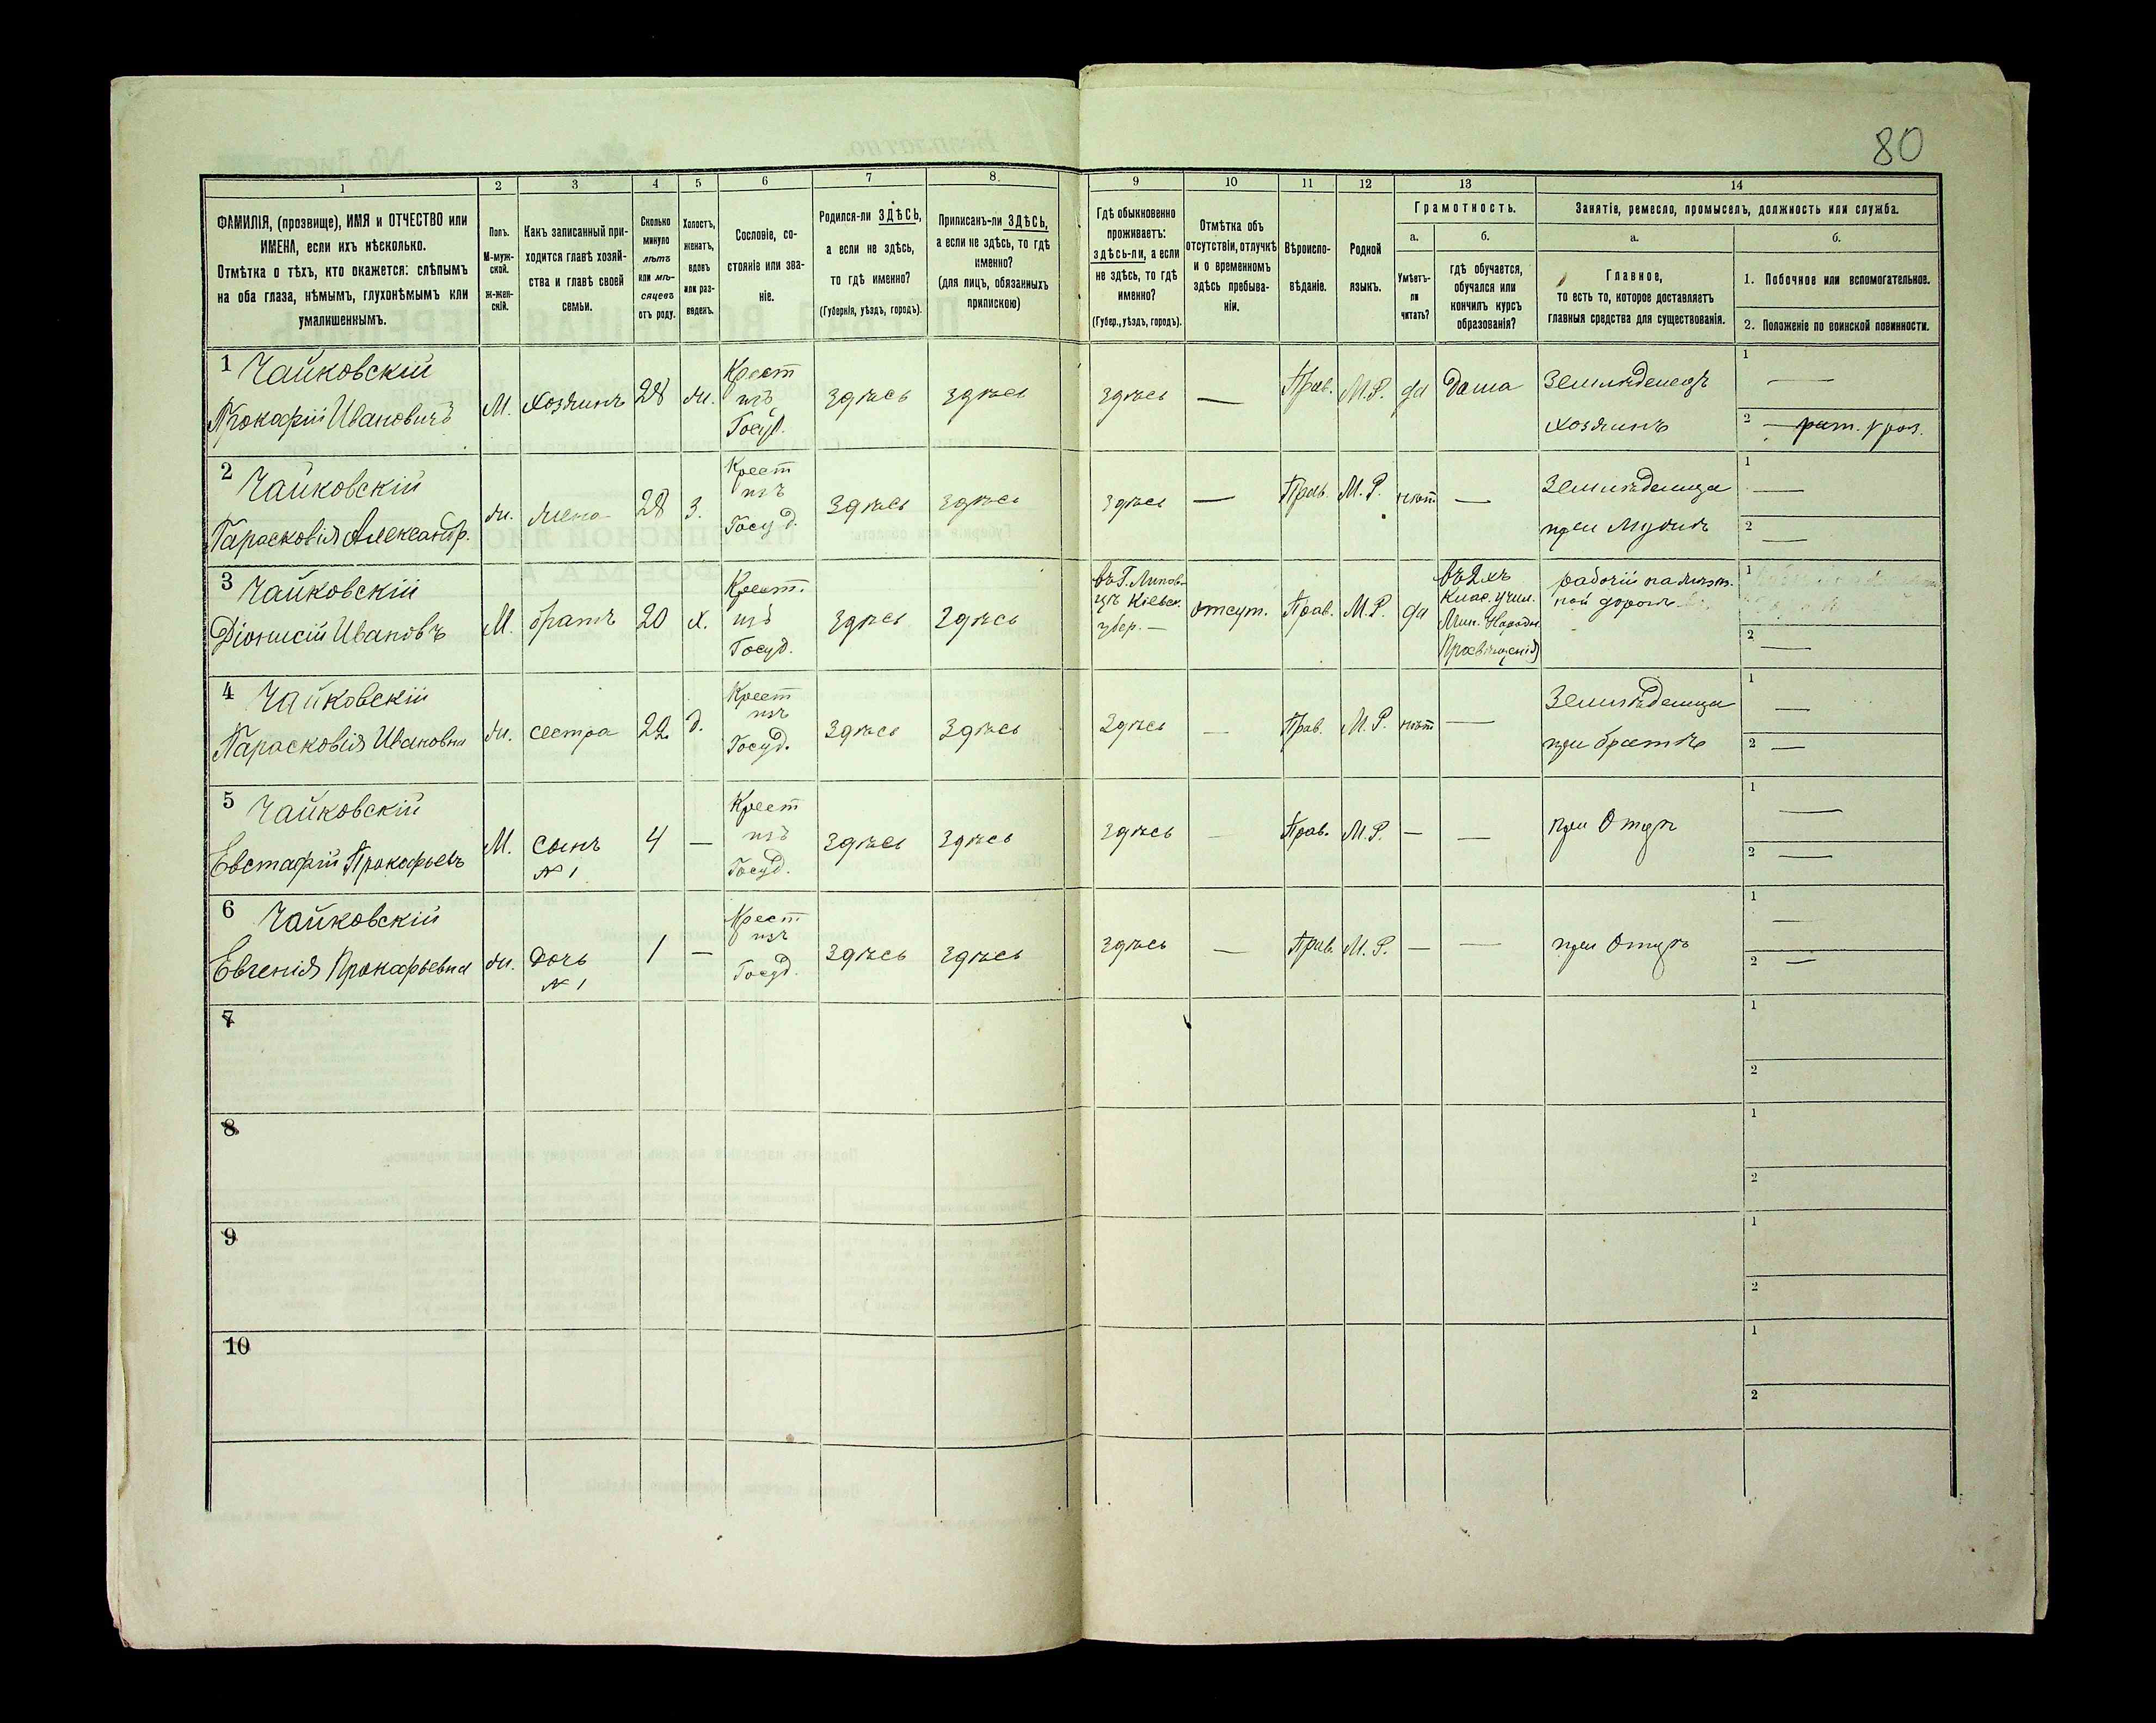 80
1 2 3 4 5 6 7 8 9 10 11 12 13 14
ФАМИЛІЯ, (прозвище), ИМЯ и ОТЧЕСТВО или
ИМЕНА, если ихъ нѣсколько.
Отмѣтка о тѣхъ, кто окажется: слѣпымъ
на оба глаза, нѣмымъ, глухонѣмымъ или
умалишеннымъ.
Полъ.
М-муж-
ской.
ж-жен-
скій.
Какъ записанный при-
ходится главѣ хозяй-
ства и главѣ своей
семьи.
Сколько
минуло
лѣтъ
или мѣ-
сяцевъ
отъ роду.
Холостъ,
женатъ,
вдовъ
или раз-
веденъ.
Сословіе, со-
стояніе или зва-
ніе.
Родился-ли ЗДѢСЬ,
а если не здѣсь,
то гдѣ именно?
(Губернія, уѣздъ, городъ).
Приписанъ-ли ЗДѢСЬ,
а если не здѣсь, то гдѣ
именно?
(для лицъ, обязанныхъ
припискою)
Гдѣ обыкновенно
проживаетъ:
здѣсь-ли, а если
не здѣсь, то гдѣ
именно?
(Губер., уѣздъ, городъ).
Отмѣтка объ
отсутствіи, отлучкѣ
и о временномъ
здѣсь пребыва-
ніи.
Вѣроиспо-
вѣданіе.
Родной
языкъ.
Грамотность.
а.
Умѣетъ-
ли
читать?
б.
гдѣ обучается,
обучался или
кончилъ курсъ
образованія?
Занятіе, ремесло, промыселъ, должность или служба.
а.
Главное,
то есть то, которое доставляетъ
главныя средства для существованія.
б.
1. Побочное или вспомогательное.
2. Положеніе по воинской повинности.
1 Чайковскій
Прокафій Ивановичъ
М. хозяинъ 28 ж.
Крест
изъ
Госуд.
здѣсь здѣсь здѣсь — Прав. М.Р. да дома
Земледелецъ
хозяинъ
1 —
2 — рат. 1 раз.
2 Чайковскій
Парасковія Александр.
ж. жена 28 з.
Крест
изъ
Госуд.
здѣсь здѣсь здѣсь — Прав. М.Р. нѣт —
Земледелица
при мужѣ
1 —
2 —
3 Чайковскій
Діонисій Ивановъ
М. братъ 20 х.
Крест.
изъ
Госуд.
здѣсь здѣсь
въ Г. Липов-
цѣ Кіевск.
губер. —
отсут. Прав. М.Р. да
въ 2хъ
Клас. учил.
Мин. Народн.
Просвѣщенія
рабочій на желѣз.
ной дорогѣ
1
2 —
4 Чайковскій
Парасковія Ивановна
ж. сестра 22 д.
Крест
изъ
Госуд.
здѣсь здѣсь здѣсь — Прав. М.Р. нѣт —
Земледелица
при братѣ
1 —
2 —
5 Чайковскій
Евстафій Прокафьевъ
М. сынъ 4 —
№ 1
Крест
изъ
Госуд.
здѣсь здѣсь здѣсь — Прав. М.Р. — —
при Отцѣ
1 —
2 —
6 Чайковскій
Евгенія Прокафьевна
ж. дочь 1 —
№ 1
Крест
изъ
Госуд.
здѣсь здѣсь здѣсь — Прав. М.Р. — —
при Отцѣ
1 —
2 —
7
1
2
8
1
2
9
1
2
10
1
2